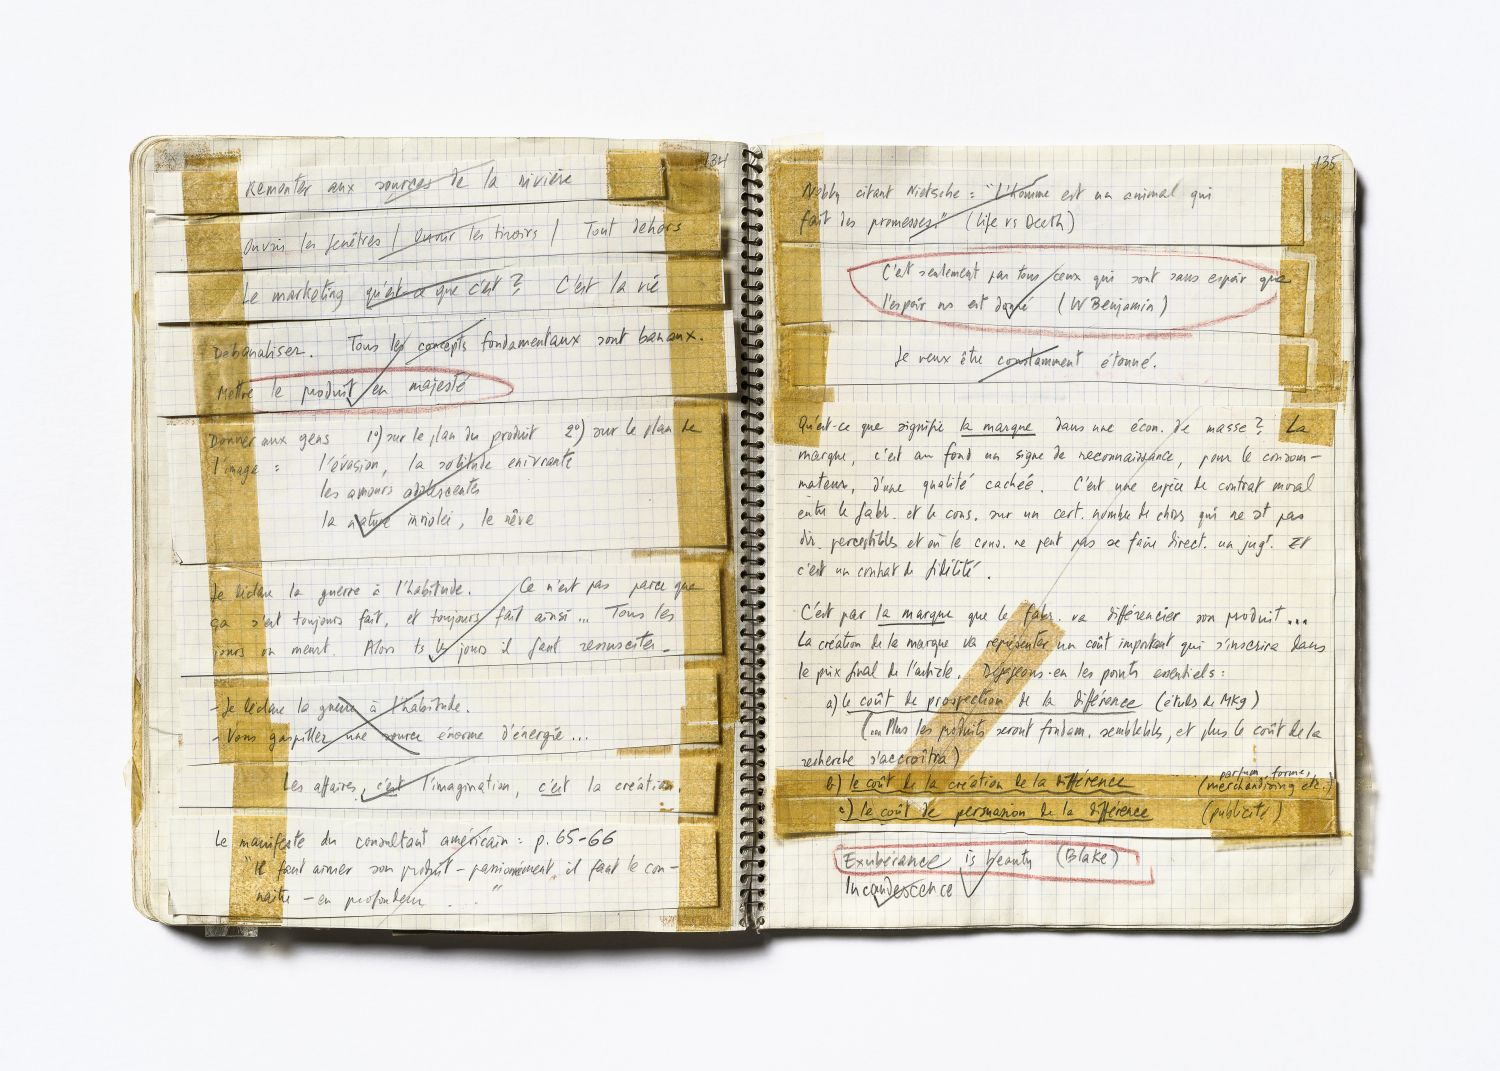 134
Remonter aux sources de la rivière
Ouvrir les fenêtres / Ouvrir les tiroirs / Tout dehors
Le marketing qu'est ce que c'est ? C'est la vie
Débanaliser. Tous les concepts fondamentaux sont banaux.
Mettre le produit en majesté
Donner aux gens 1°) sur le plan du produit 2°) sur le plan de
l'image : l'évasion, la solitude enivrante
les amours adolescentes
la nature , le rêve
Je déclare la guerre à l'habitude. Ce n'est pas parce que
ça s'est toujours fait, et toujours fait ainsi... Tous les
jours on meurt. Alors ts les jours il faut ressusciter.
- Je déclare la guerre à l'habitude.
- Vous gaspillez une source énorme d'énergie...
Les affaires, c'est l'imagination, c'est la création.
Le manifeste du consultant américain : p. 65-66
"Il faut aimer son produit - passionnément, il faut le con-
naître - en profondeur ..."
135
Nobby citant Nietsche : "L'homme est un animal qui
fait des promesses" (Life vs Death)
C'est seulement par tous ceux qui sont sans espoir que
l'espoir ns est donné (W Benjamin)
Je veux être constamment étonné.
Qu'est-ce que signifie la marque dans une écon. de masse ? La
marque, c'est au fond un signe de reconnaissance, pour le consom-
mateur, d'une qualité cachée. C'est une espèce de contrat moral
entre le fabr. et le cons. sur un cert. nombre de choses qui ne st pas
dir. perceptibles et où le cons. ne peut pas se faire direct. un jugt. Et
c'est un contrat de fidélité.
C'est par la marque que le fabr. va différencier son produit ...
La création de la marque va représenter un coût important qui s'inscrira dans
le prix final de l'article. Dégageons-en les points essentiels :
a) le coût de prospection de la différence (études de MKg)
(... Plus les produits seront fondam. semblables, et plus le coût de la
recherche s'accroîtra)
b) le coût de la création de la différence (parfum, forme, merchandising etc.)
c) le coût de persuasion de la différence (publicité)
Exubérance is beauty (Blake)
Incandescence